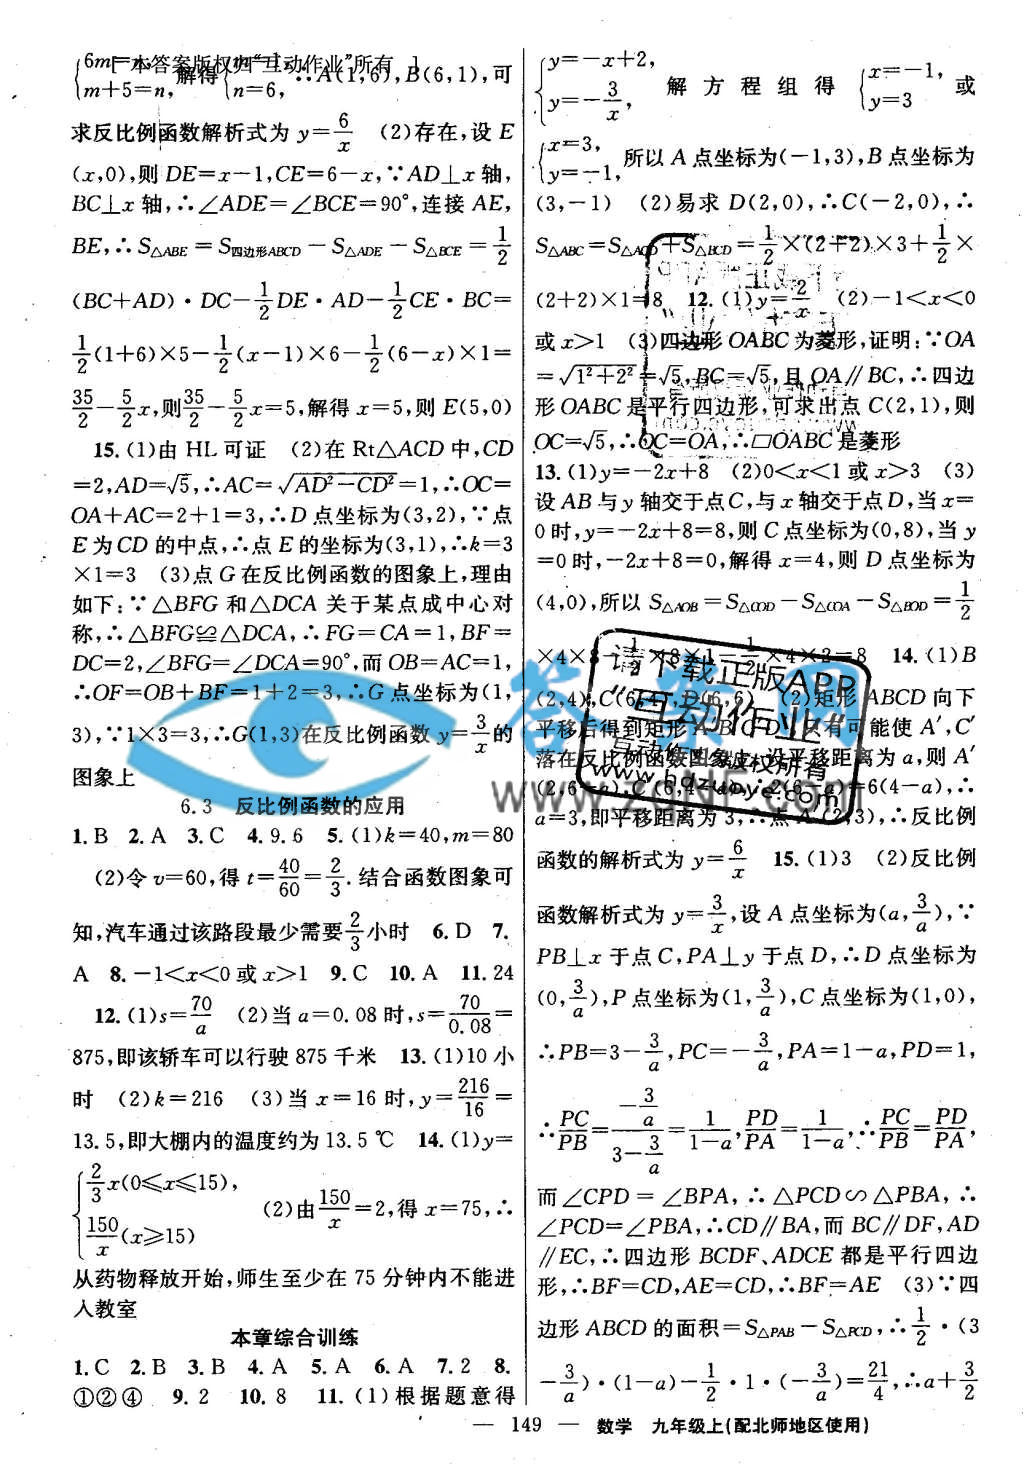 [本答案版权归“互动作业”所有]
{6m=n, m+5=n, 解得{m=1, n=6, ∴A(1,6),B(6,1),可
求反比例函数解析式为 y=6/x (2)存在,设 E
(x,0),则 DE=x−1,CE=6−x,∵AD⊥x 轴,
BC⊥x 轴,∴∠ADE=∠BCE=90°,连接 AE,
BE,∴S△ABE=S四边形ABCD−S△ADE−S△BCE=1/2
(BC+AD)·DC−1/2DE·AD−1/2CE·BC=
1/2(1+6)×5−1/2(x−1)×6−1/2(6−x)×1=
35/2−5/2x,则35/2−5/2x=5,解得 x=5,则 E(5,0)
15.(1)由 HL 可证 (2)在 Rt△ACD 中,CD
=2,AD=√5,∴AC=√(AD²−CD²)=1,∴OC=
OA+AC=2+1=3,∴D 点坐标为(3,2),∵点
E 为 CD 的中点,∴点 E 的坐标为(3,1),∴k=3
×1=3 (3)点 G 在反比例函数的图象上,理由
如下:∵△BFG 和△DCA 关于某点成中心对
称,∴△BFG≌△DCA,∴FG=CA=1,BF=
DC=2,∠BFG=∠DCA=90°,而 OB=AC=1,
∴OF=OB+BF=1+2=3,∴G 点坐标为(1,
3),∵1×3=3,∴G(1,3)在反比例函数 y=3/x的
图象上
6.3 反比例函数的应用
1.B 2.A 3.C 4.9.6 5.(1)k=40,m=80
(2)令 v=60,得 t=40/60=2/3.结合函数图象可
知,汽车通过该路段最少需要2/3小时 6.D 7.
A 8.−1<x<0 或 x>1 9.C 10.A 11.24
12.(1)s=70/a (2)当 a=0.08 时,s=70/0.08=
875,即该轿车可以行驶 875 千米 13.(1)10 小
时 (2)k=216 (3)当 x=16 时,y=216/16=
13.5,即大棚内的温度约为 13.5 ℃ 14.(1)y=
{2/3x(0≤x≤15), 150/x(x≥15) (2)由150/x=2,得 x=75,∴
从药物释放开始,师生至少在 75 分钟内不能进
入教室
本章综合训练
1.C 2.B 3.B 4.A 5.A 6.A 7.2 8.
①②④ 9.2 10.8 11.(1)根据题意得
{y=−x+2, y=−3/x, 解方程组得{x=−1, y=3 或
{x=3, y=−1, 所以 A 点坐标为(−1,3),B 点坐标为
(3,−1) (2)易求 D(2,0),∴C(−2,0),∴
S△ABC=S△ACD+S△BCD=1/2×(2+2)×3+1/2×
(2+2)×1=8 12.(1)y=2/x (2)−1<x<0
或 x>1 (3)四边形 OABC 为菱形,证明:∵OA
=√(1²+2²)=√5,BC=√5,且 OA∥BC,∴四边
形 OABC 是平行四边形,可求出点 C(2,1),则
OC=√5,∴OC=OA,∴▱OABC 是菱形
13.(1)y=−2x+8 (2)0<x<1 或 x>3 (3)
设 AB 与 y 轴交于点 C,与 x 轴交于点 D,当 x=
0 时,y=−2x+8=8,则 C 点坐标为(0,8),当 y
=0 时,−2x+8=0,解得 x=4,则 D 点坐标为
(4,0),所以 S△AOB=S△COD−S△COA−S△BOD=1/2
×4×8−1/2×8×1−1/2×4×2=8 14.(1)B
(2,4),C(6,4),D(6,6) (2)矩形 ABCD 向下
平移后得到矩形 A′B′C′D′,只有可能使 A′,C′
落在反比例函数图象上,设平移距离为 a,则 A′
(2,6−a),C′(6,4−a),∴2(6−a)=6(4−a),∴
a=3,即平移距离为 3,∴点 A′(2,3),∴反比例
函数的解析式为 y=6/x 15.(1)3 (2)反比例
函数解析式为 y=3/x,设 A 点坐标为(a,3/a),∵
PB⊥x 于点 C,PA⊥y 于点 D,∴D 点坐标为
(0,3/a),P 点坐标为(1,3/a),C 点坐标为(1,0),
∴PB=3−3/a,PC=−3/a,PA=1−a,PD=1,
∴PC/PB=(−3/a)/(3−3/a)=1/(1−a),PD/PA=1/(1−a),∴PC/PB=PD/PA,
而∠CPD=∠BPA,∴△PCD∽△PBA,∴
∠PCD=∠PBA,∴CD∥BA,而 BC∥DF,AD
∥EC,∴四边形 BCDF、ADCE 都是平行四边
形,∴BF=CD,AE=CD,∴BF=AE (3)∵四
边形 ABCD 的面积=S△PAB−S△PCD,∴1/2·(3
−3/a)·(1−a)−1/2·1·(−3/a)=21/4,∴a+3/2
答案网
www.zqnf.com
请下载正版APP
“互动作业”
互动作业 版权所有
www.hdzuoye.com
— 149 — 数学 九年级上(配北师地区使用)